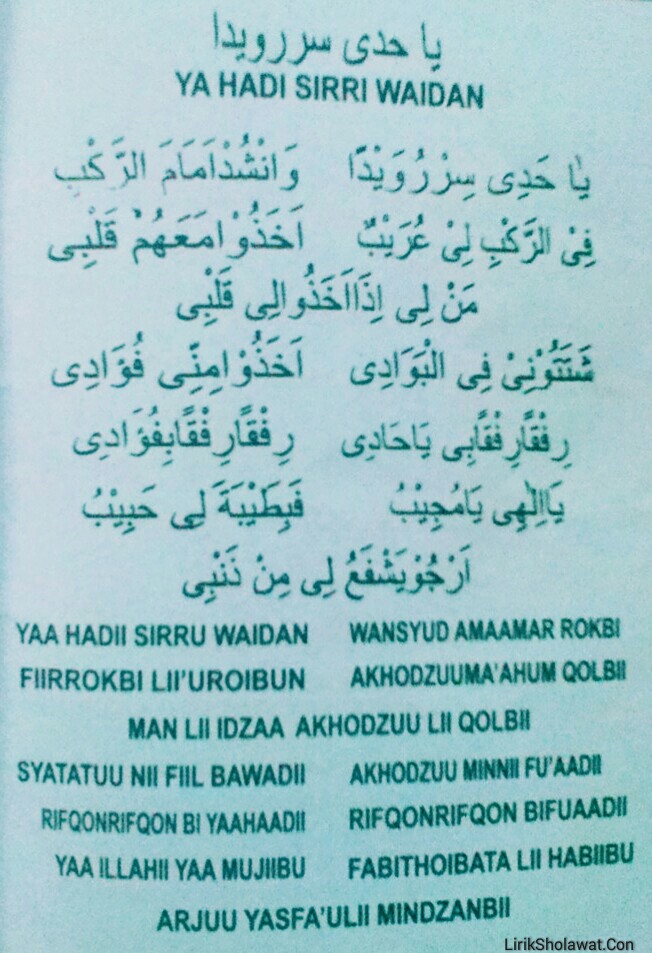 يا حدى سررويدا
YA HADI SIRRI WAIDAN
يٰا حَدِى سِرْرُوَيْدًا وَانْشُدْاَمَامَ الرَّكْبِ
فِىْ الرَّكْبِ لِىْ عُرَيْبٌ اَخَذُوْامَعَهُمْ قَلْبِى
مَنْ لِى اِذَااَخَذُوالِى قَلْبِى
شَتَتُوْنِىْ فِى الْبَوَادِى اَخَذُوْامِنِّى فُؤَادِى
رِفْقًارِفْقًابِى يَاحَادِى رِفْقًارِفْقًابِفُؤَادِى
يَااِلٰهِى يَامُجِيْبُ فَبِطَيْبَةَ لِى حَبِيْبُ
اَرْجُوْيَشْفَعُ لِى مِنْ ذَنْبِى
YAA HADII SIRRU WAIDAN WANSYUD AMAAMAR ROKBI
FIIRROKBI LII'UROIBUN AKHODZUUMA'AHUM QOLBII
MAN LII IDZAA AKHODZUU LII QOLBII
SYATATUU NII FIIL BAWADII AKHODZUU MINNII FU'AADII
RIFQONRIFQON BI YAAHAADII RIFQONRIFQON BIFUAADII
YAA ILLAHII YAA MUJIIBU FABITHOIBATA LII HABIIBU
ARJUU YASFA'ULII MINDZANBII
LirikSholawat.Con